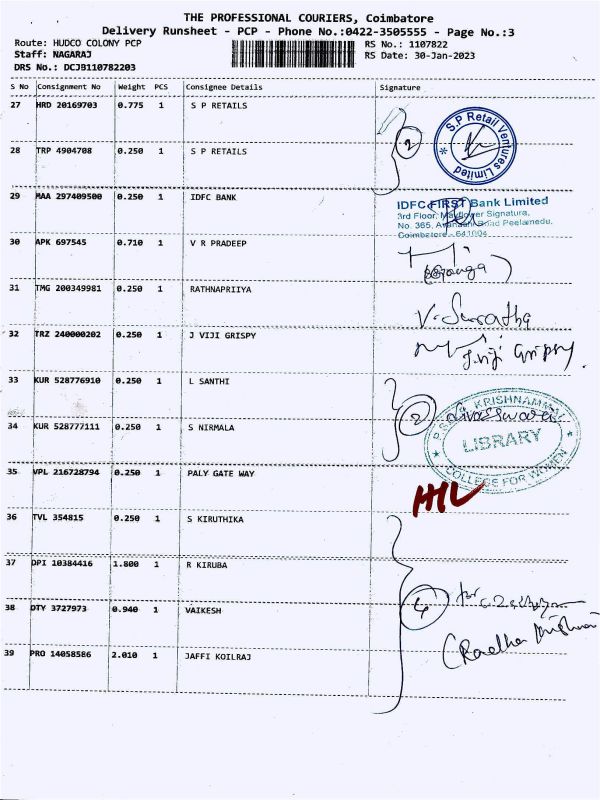 THE PROFESSIONAL COURIERS, Coimbatore
Delivery Runsheet - PCP - Phone No.:0422-3505555 - Page No.:3
Route: HUDCO COLONY PCP RS No.: 1107822
Staff: NAGARAJ RS Date: 30-Jan-2023
DRS No.: DCJB110782203
S No Consignment No Weight PCS Consignee Details Signature
27 HRD 20169703 0.775 1 S P RETAILS
2
S P Retail Ventures Limited
28 TRP 4904708 0.250 1 S P RETAILS
29 MAA 297409500 0.250 1 IDFC BANK
IDFC FIRST Bank Limited
3rd Floor, Mayflower Signature,
No. 365, Avanashi Road Peelamedu,
Coimbatore - 641004
30 APK 697545 0.710 1 V R PRADEEP
31 TMG 200349981 0.250 1 RATHNAPRIIYA
V. Suratha
32 TRZ 240000202 0.250 1 J VIJI GRISPY
J. Viji Grispy.
33 KUR 528776910 0.250 1 L SANTHI
2
KRISHNAMMAL
LIBRARY
COLLEGE FOR WOMEN
34 KUR 528777111 0.250 1 S NIRMALA
35 VPL 216728794 0.250 1 PALY GATE WAY
36 TVL 354815 0.250 1 S KIRUTHIKA
37 DPI 10384416 1.800 1 R KIRUBA
4 for
38 OTY 3727973 0.940 1 VAIKESH
(Radha Krishnan)
39 PRO 14058586 2.010 1 JAFFI KOILRAJ